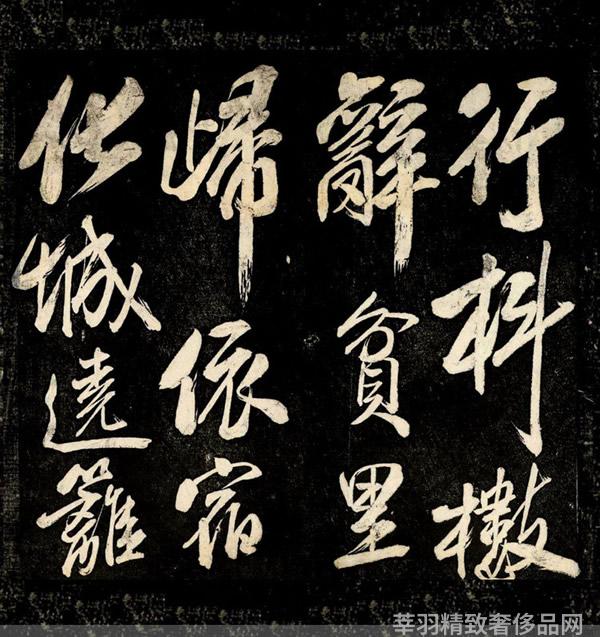 行枓櫢
辭貧里
歸依宿
化城遶籬
莘羽精致奢侈品网